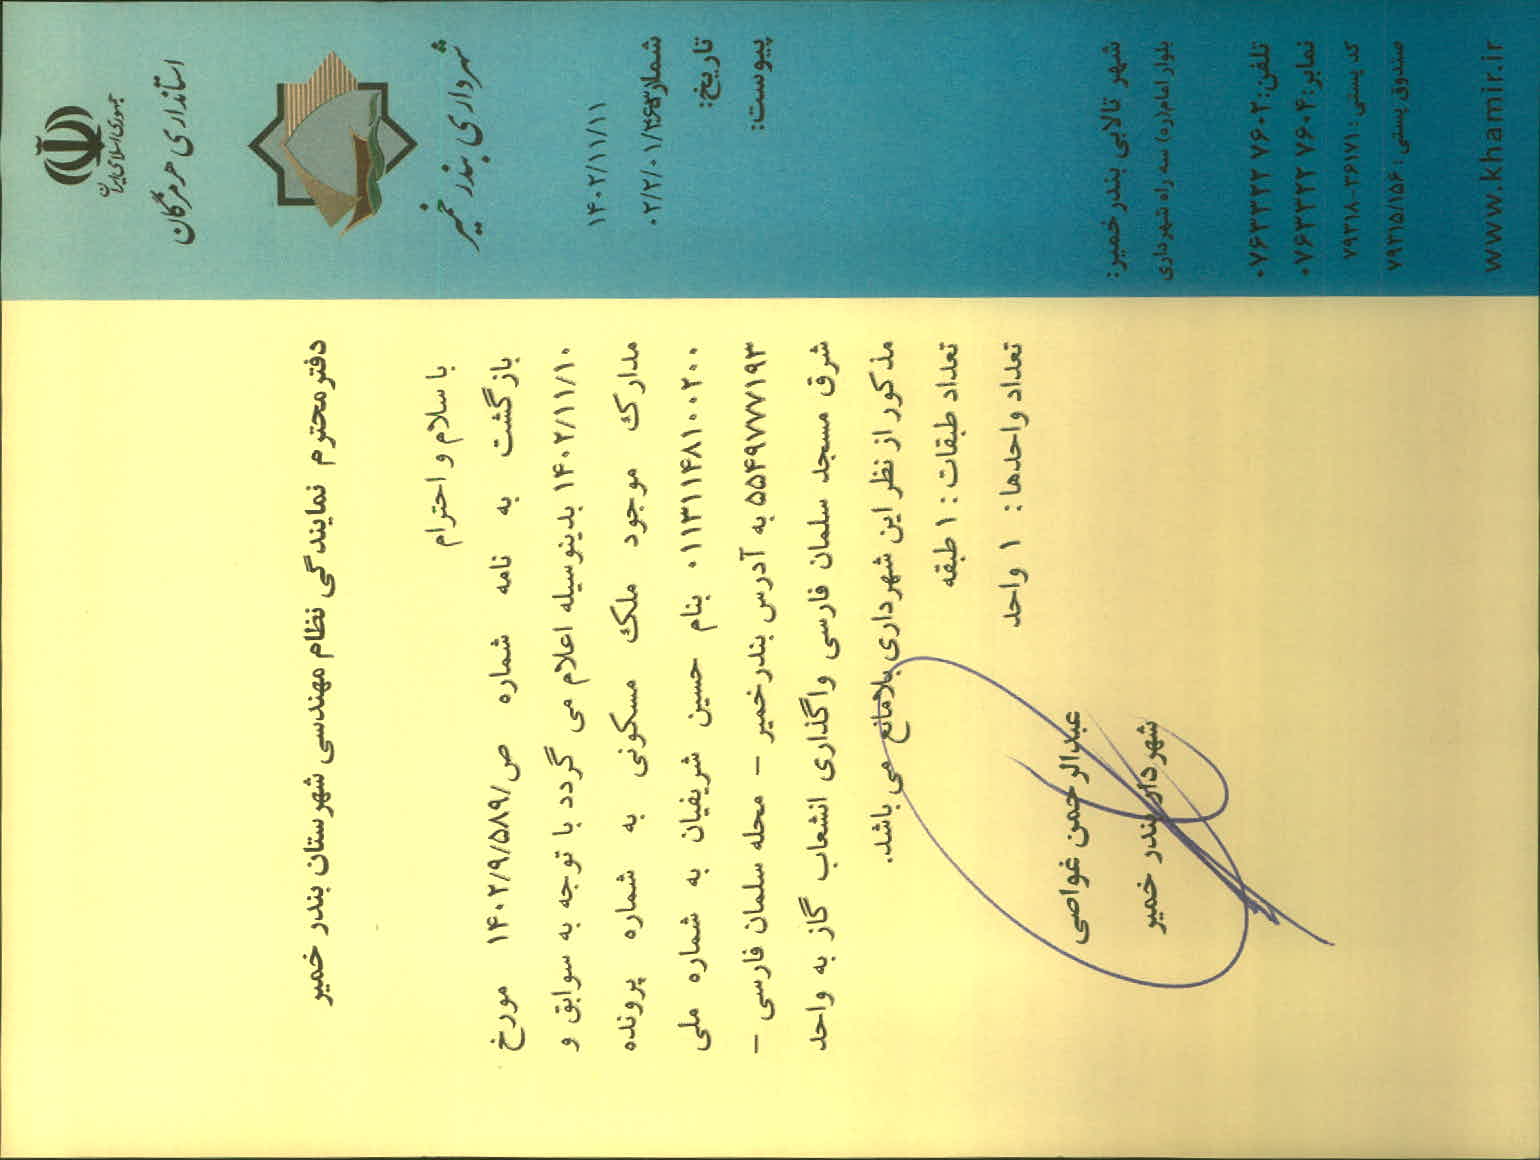 جمهوری اسلامی ایران
استانداری هرمزگان
شهرداری بندر خمیر
۱۴۰۲/۱۱/۱۱
شماره:
تاریخ:
پیوست:
دفتر محترم نمایندگی نظام مهندسی شهرستان بندر خمیر
با سلام و احترام
بازگشت به نامه شماره ص/۱۴۰۲/۹/۵۸۹ مورخ
۱۴۰۲/۱۱/۱۰ بدینوسیله اعلام می گردد با توجه به سوابق و
مدارک موجود ملک مسکونی به شماره پرونده
۰۱۱۳۱۱۴۸۱۰۰۲۰۰ بنام حسین شریفیان به شماره ملی
۵۵۴۹۷۷۷۱۹۳ به آدرس بندرخمیر – محله سلمان فارسی –
شرق مسجد سلمان فارسی واگذاری انشعاب گاز به واحد
مذکور از نظر این شهرداری بلامانع می باشد.
تعداد طبقات : ۱ طبقه
تعداد واحدها : ۱ واحد
عبدالرحمن غواصی
شهردار بندر خمیر
شهر تالابی بندر خمیر:
بلوار امام(ره) سه راه شهرداری
تلفن: ۰۷۶۳۳۲۲ ۷۶۰۲
نمابر: ۰۷۶۳۳۲۲ ۷۶۰۴
کد پستی: ۷۹۳۱۸-۳۶۱۷۱
صندوق پستی: ۷۹۳۱۵/۱۵۶
www.khamir.ir